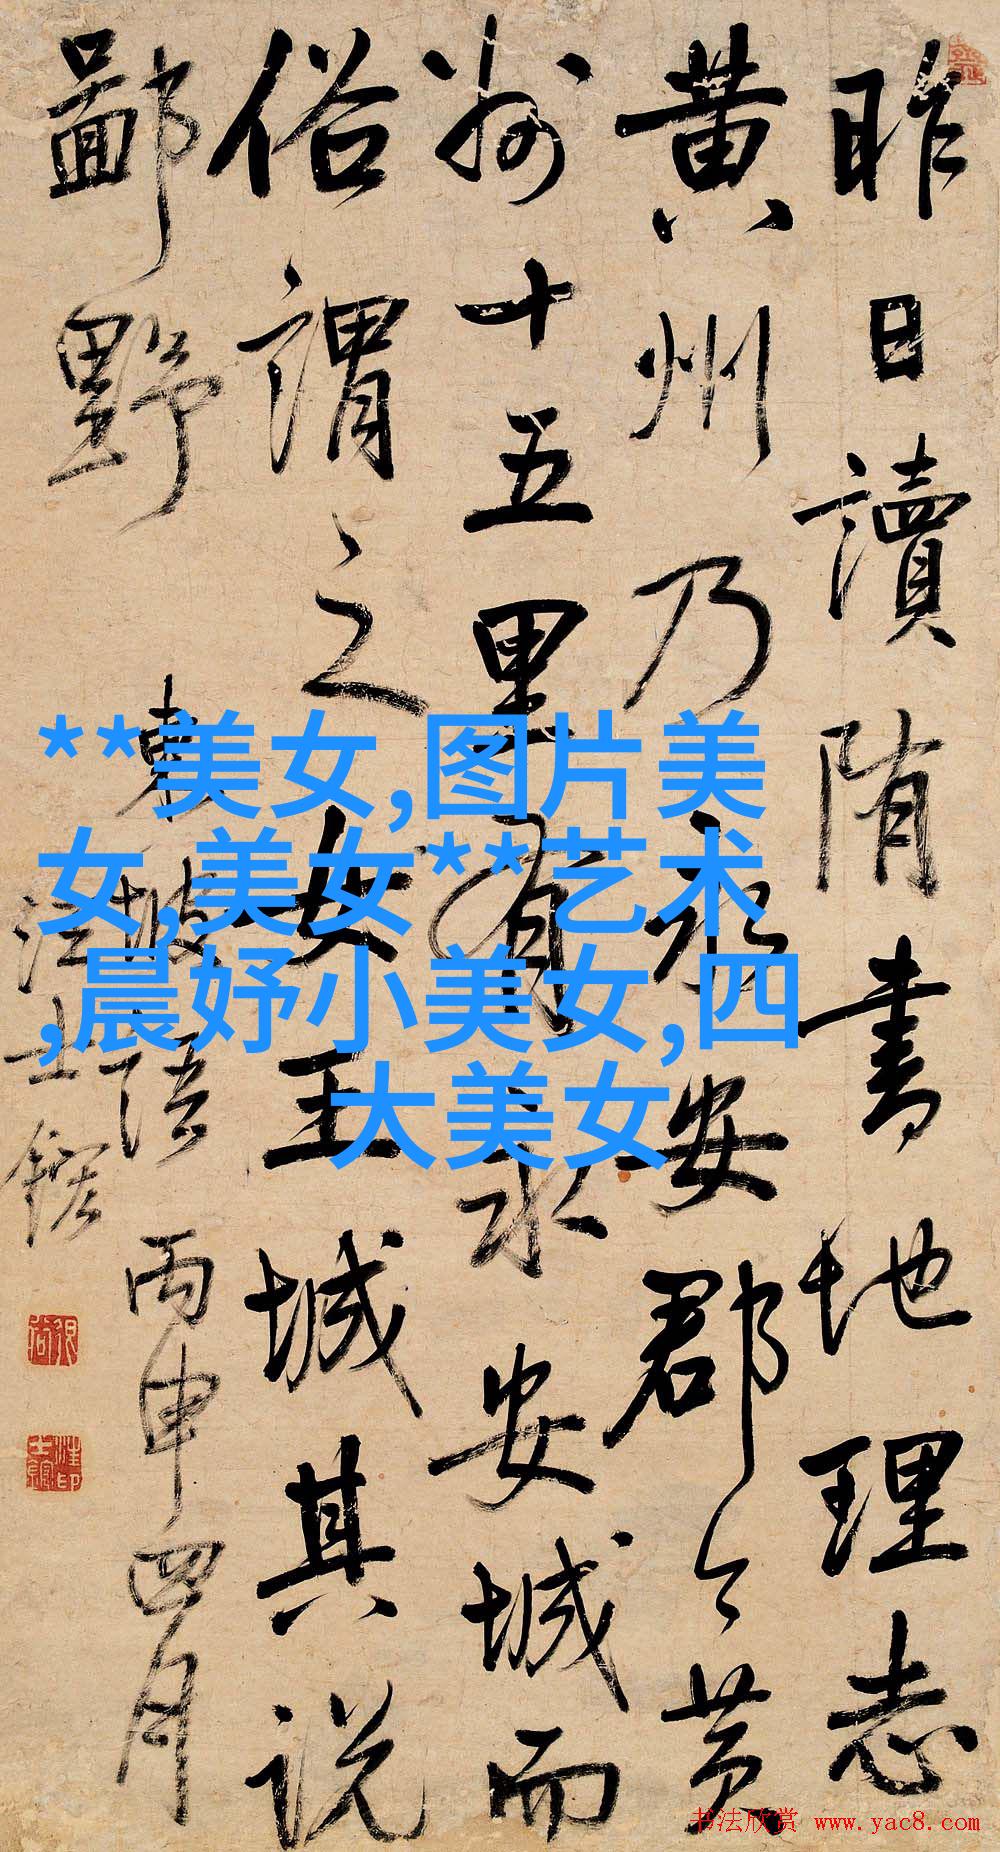 昨日讀隋書地理志
黄州乃永安郡今黄
州十五里有永安城而
俗謂之女王城其説
鄙野
東坡語 丙申四月
汪士鋐
**美女,图片美
女,美女**艺术
,晨妤小美女,四
大美女
书法欣赏 www.yac8.com